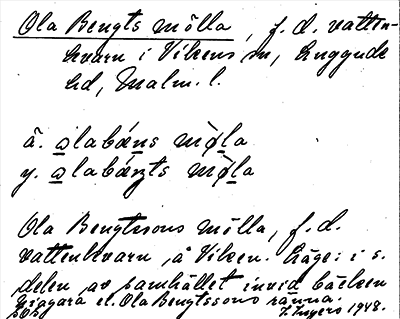 Ola Bengts mölla, f. d. vatten-
kvarn i Vikens sn, Luggude
hd, Malm. l.
ä. ɷlabæns mø̀la
y. ɷlabæŋts mø̀la
Ola Bengtssons mölla, f. d.
vattenkvarn, å Viken. Läge: i s.
delen av samhället invid bäcken
Niagara el. Ola Bengtssons ränna.
1948.